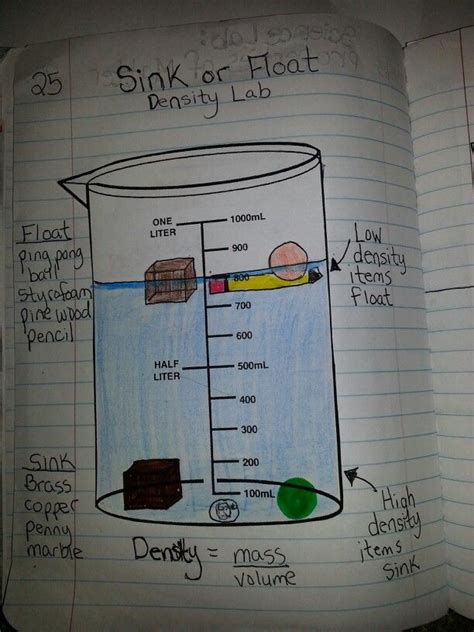 25
Sink or Float
Density Lab
Float
ping pong
ball
styrofoam
pine wood
pencil
ONE
LITER
1000mL
900
800
700
600
HALF
LITER
500mL
400
300
200
100mL
Low
density
items
Float
Sink
Brass
copper
penny
marble
High
density
items
Sink
Density = mass
volume